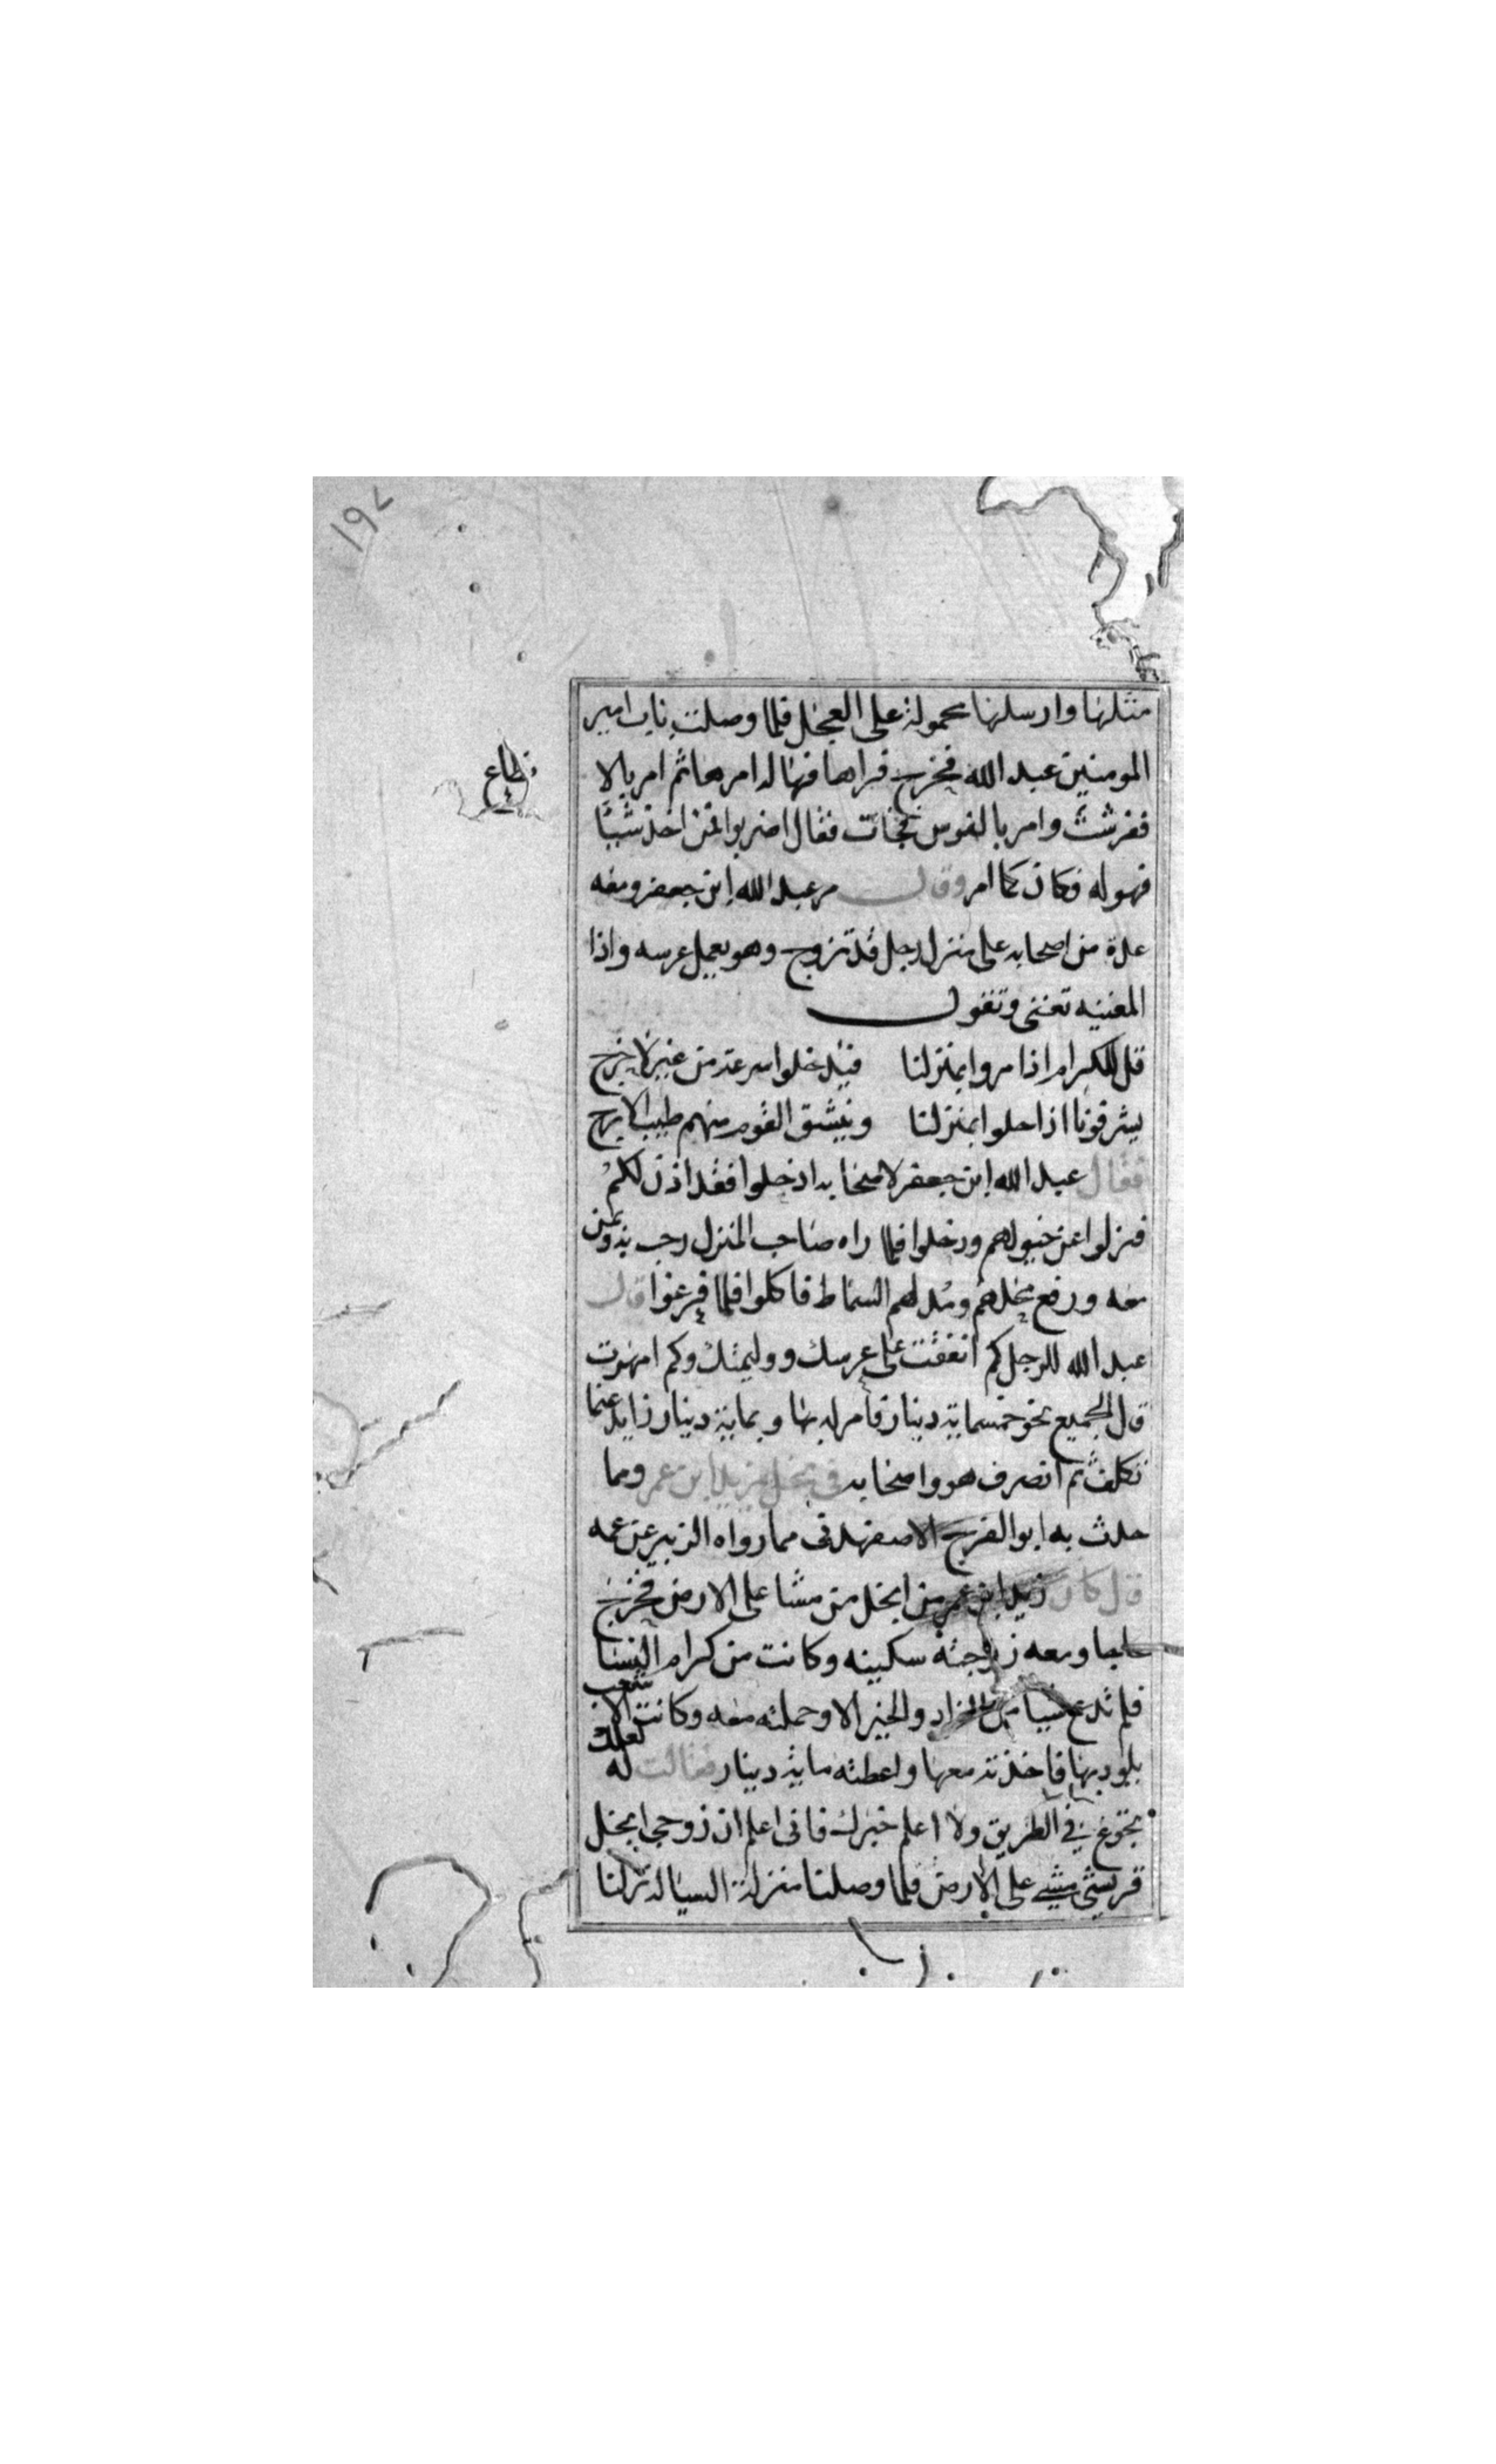 ١٩٢
مثلها وارسلها محمولة على العجل فلما وصلت باب امير
المومنين عبد الله فخرج فراها فهاله امرها ثم امر بالا
نطاع
ففرشت وامر بالفوس فجات فقال اضربوا فمن اخذ شيبا
فهو له فكان كما امر وقال مر عبد الله ابن جعفر ومعه
عدة من اصحابه على منزل رجل قد تزوج وهو يعمل عرسه واذا
المغنيه تغنى وتقول
قل للكرام اذا مروا بمنزلنا فيدخلوا سرعة من غير لا حرج
يشرفونا اذا حلوا بمنزلنا وينشق القوم منهم طيب الارج
فقال عبد الله ابن جعفر لاصحابه ادخلوا فقد اذن لكم
فنزلوا عن خيولهم ودخلوا فلما راه صاحب المنزل رحب به وبمن
معه ورفع محلهم ومد لهم السماط فاكلوا فلما فرغوا قال
عبد الله للرجل كم انفقت على عرسك ووليمتك وكم امهرت
قال الجميع نحو خمسماية دينار فامر له بها وبماية دينار زايد عنما
تكلف ثم انصرف هو واصحابه في بخل زيد ابن عمر ومما
حدث به ابو الفرج الاصفهدنى مما رواه الزبير عن عمه
قال كان زيد ابن عمر من ابخل من مشا على الارض فخرج
حاجا ومعه زوجته سكينه وكانت من كرام النسا
فلم تدع شيبا من الزاد والخير الا وحملته معه وكانت الا شعب
يلود بها فاخذته معها واعطته ماية دينار فقالت له لعلك
تجوع في الطريق ولا اعلم خبرك فانى اعلم ان زوجى ابخل
قريشى مشي على الارض فلما وصلنا منزلة السياله نزلنا